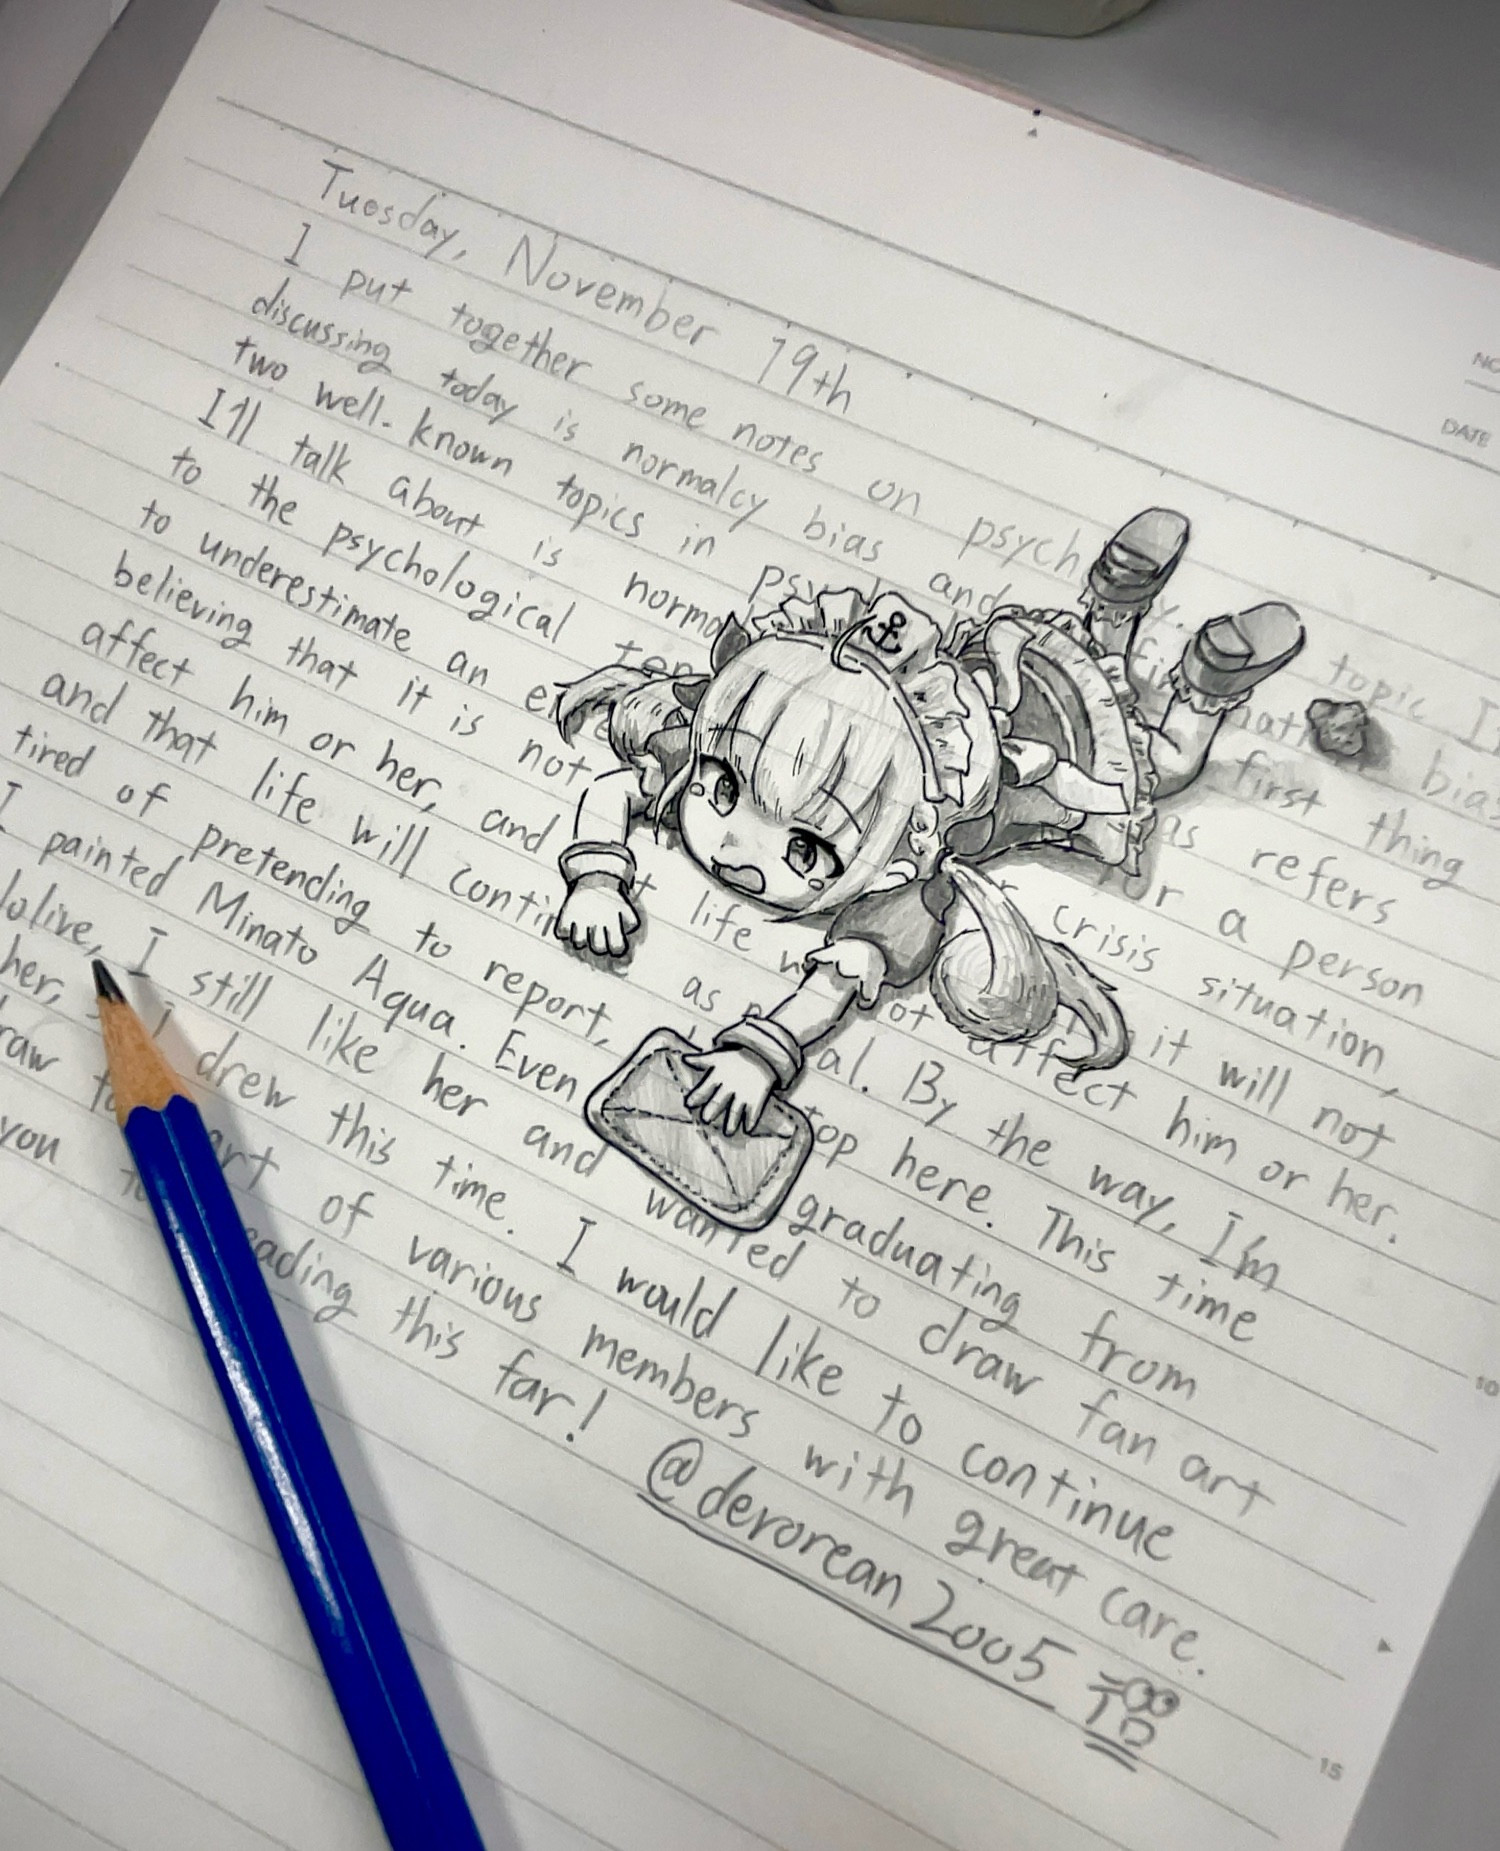 Tuesday, November 19th
I put together some notes on topic
discussing today is normalcy bias and bias
two well-known topics in first thing
I'll talk about is refers
to the psychological a person
to underestimate an crisis situation,
believing that it is not it will not
affect him or her, and life not affect him or her.
and that life will as By the way, I'm
tired of pretending to report, here. This time
I painted Minato Aqua. Even graduating from
I still like her and wanted to draw fan art
her, I drew this time. I would like to continue
art of various members with great care.
you this far! @derorean2005
NO
DATE
10
15